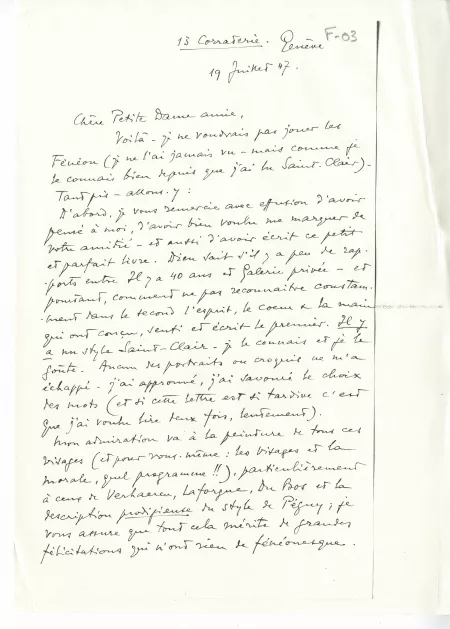 13 Corraterie. Genève
F-03
19 Juillet 47.
Chère Petite Dame amie,
Voilà - je ne voudrais pas jouer les
Fénéon (je ne l'ai jamais vu - mais comme je
le connais bien depuis que j'ai lu Saint-Clair).
Tant pis - allons-y :
D'abord, je vous remercie avec effusion d'avoir
pensé à moi, d'avoir bien voulu me marquer de
votre amitié - et aussi d'avoir écrit ce petit
et parfait livre. Dieu sait s'il y a peu de rap-
-ports entre Il y a 40 ans et Galerie privée - et
pourtant, comment ne pas reconnaître constam-
-ment dans le second l'esprit, le coeur & la main
qui ont conçu, senti et écrit le premier. Il y
a un style Saint-Clair - je le connais et je le
goûte. Aucun des portraits ou croquis ne m'a
échappé - j'ai approuvé, j'ai savouré le choix
des mots (et si cette lettre est si tardive c'est
que j'ai voulu lire deux fois, lentement).
Mon admiration va à la peinture de tous ces
visages (et pour vous-même : les visages et la
morale, quel programme !!), particulièrement
à ceux de Verhaeren, Laforgue, Du Bos et la
description prodigieuse du style de Péguy ; je
vous assure que tout cela mérite de grandes
félicitations qui n'ont rien de fénéonesque.